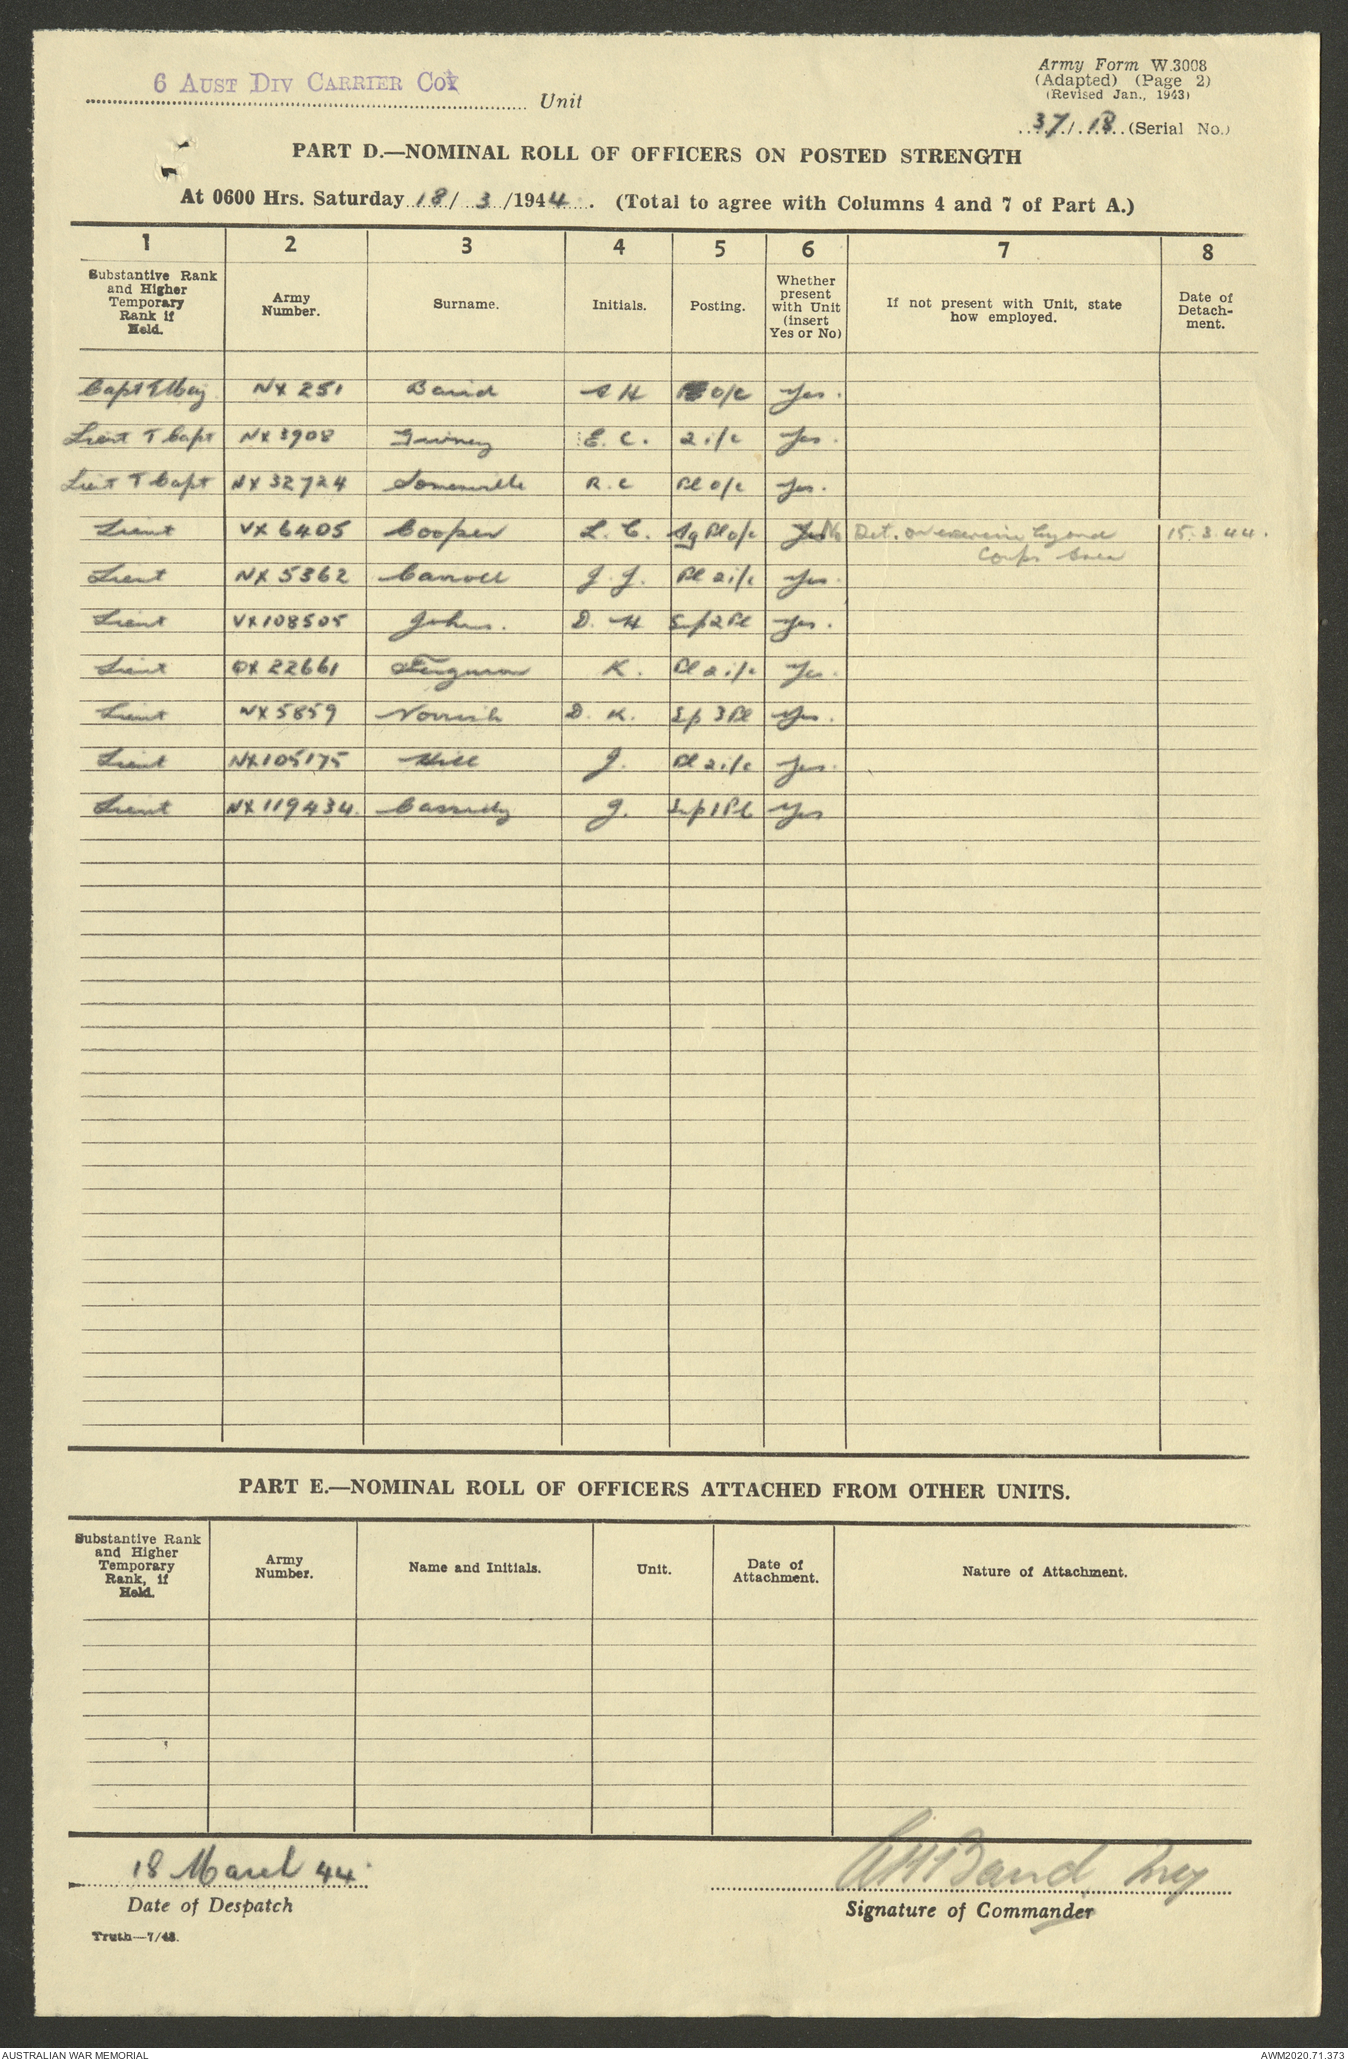 6 AUST DIV CARRIER COY Unit
Army Form W.3008
(Adapted) (Page 2)
(Revised Jan., 1943)
37/18 (Serial No.)
PART D.—NOMINAL ROLL OF OFFICERS ON POSTED STRENGTH
At 0600 Hrs. Saturday 18/ 3 /1944. (Total to agree with Columns 4 and 7 of Part A.)
1 2 3 4 5 6 7 8
Substantive Rank and Higher Temporary Rank if Held. Army Number. Surname. Initials. Posting. Whether present with Unit (insert Yes or No) If not present with Unit, state how employed. Date of Detachment.
Capt T/Maj NX 251 Baird A H O/C Yes.
Lieut T Capt NX 3908 E. C. 2 i/c Yes.
Lieut T Capt NX 32724 Somerville R. C Pl o/c Yes.
Lieut VX 6405 Cooper L. C. Sg Pl o/c Yes No Det. on exercise beyond Corps Area 15.3.44.
Lieut NX 5362 Carroll J. J. Pl 2i/c Yes.
Lieut VX108505 Johns. D. H Sup 2 Pl Yes.
Lieut QX 22661 Ferguson K. Pl 2 i/c Yes.
Lieut NX 5859 Norrish D. K. Sp 3 Pl Yes.
Lieut NX105175 Hill J. Pl 2i/c Yes.
Lieut NX 119434. Cassidy J. Sup 1 Pl Yes
PART E.—NOMINAL ROLL OF OFFICERS ATTACHED FROM OTHER UNITS.
Substantive Rank and Higher Temporary Rank, if Held. Army Number. Name and Initials. Unit. Date of Attachment. Nature of Attachment.
18 March 44. AHBaird Maj
Date of Despatch Signature of Commander
Truth—7/43.
AUSTRALIAN WAR MEMORIAL AWM2020.71.373